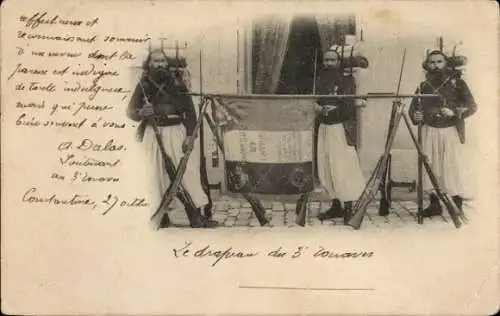 affectueux et
reconnaissant souvenir
d'un neveu dont la
paresse est indigne
de toute indulgence,
mais que peuse
bien souvent à vous
A Dalas.
Lieutenant
au 3e Zouaves
Constantine, 27 octbre
Le drapeau du 3e Zouaves